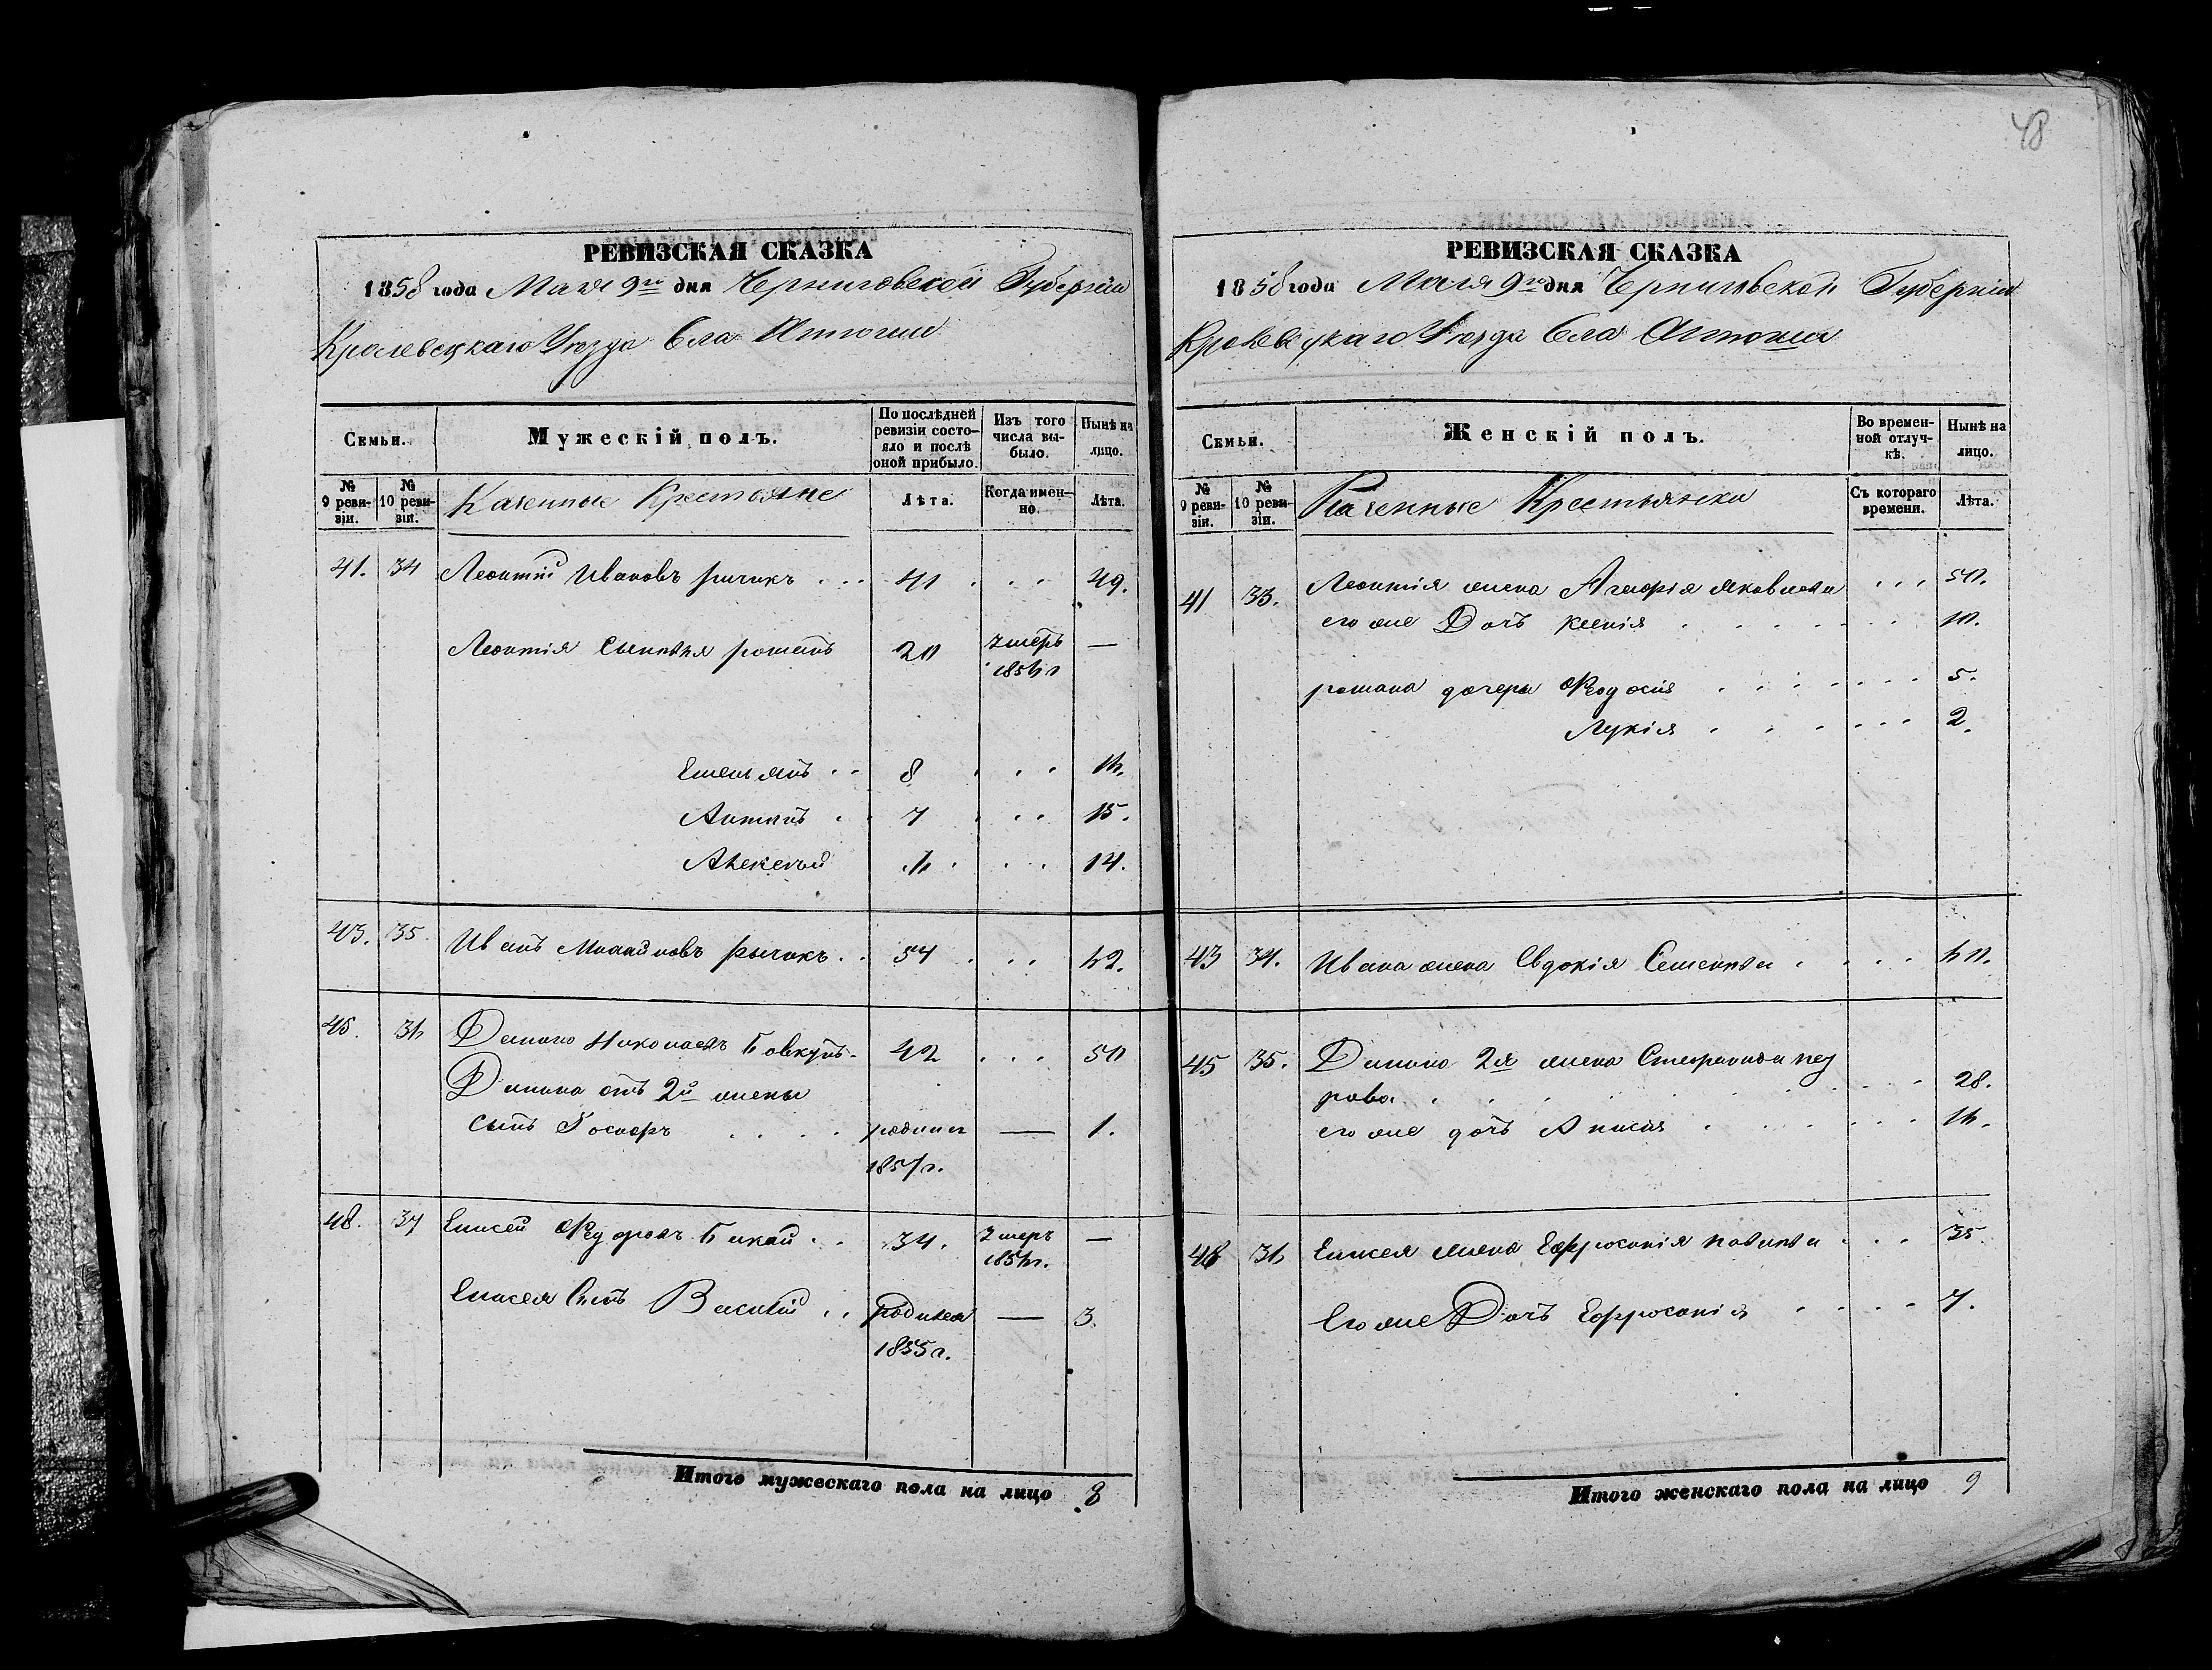 48
РЕВИЗСКАЯ СКАЗКА
1858 года Мая 9го дня Черниговской Губерніи
Кролевецкаго Уезда Села
Семьи.
Мужескій полъ.
По послѣдней ревизіи состо-
яло и послѣ
оной прибыло.
Изъ того
числа вы-
было.
Нынѣ на
лицо.
№
9 реви-
зіи.
№
10 реви-
зіи.
Казенные Крестьяне
Лѣта.
Когда имен-
но.
Лѣта.
41. 34 Леонтій Ивановъ рычикъ . . . 41 . . . 49.
Леонтія сыновья романъ 20 умеръ —
1856 г
Емельянъ . . 8 . . . 16.
Антонъ . . 7 . . . 15.
Алексѣй 6 . . . 14.
43. 35. Иванъ Михайловъ рычикъ . . 54 . . . 62.
45. 36 Николаевъ Бовкунъ . 42 . . . 50
отъ 2й жены
сынъ . . . . родился — 1.
1857 г.
48. 37 Елисей Федоровъ Бикай . . 34. умеръ —
1856 г.
Елисея Сынъ Василій . . родился — 3.
1855 г.
Итого мужескаго пола на лицо 8
РЕВИЗСКАЯ СКАЗКА
1858 года Мая 9го дня Черниговской Губерніи
Кролевецкаго Уезда Села
Семьи.
Женскій полъ.
Во времен-
ной отлуч-
кѣ.
Нынѣ на
лицо.
№
9 реви-
зіи.
№
10 реви-
зіи.
Казенные Крестьянки
Съ котораго
времени.
Лѣта.
41 33. Леонтія жена Агафія яковлева . . . 50.
его же Дочь ксенія . . . . . . . 10.
романа дочери Феодосія . . . . . . . 5.
Лукія . . . . . . . 2.
43 34. Ивана жена Евдокія Семенова . . . . 60.
45 35. 2я жена Стефанида
рова . . . . . . . 28.
его же дочь Анисія . . . . . . . 16.
48 36 Елисея жена Ефросинія . . . 35.
Его же Дочь Ефросинія . . . . 7.
Итого женскаго пола на лицо 9